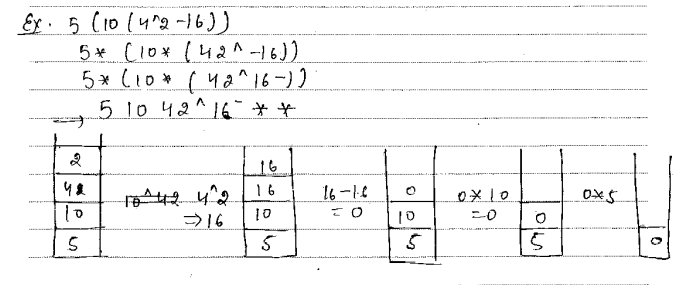 Ex. 5 (10 (4^2-16))
5* (10* (42^ -16))
5* (10* (42^16-))
→ 5 10 42^ 16- * *
2
4
10
5
4^2
⇒16
16
16
10
5
16-16
=0
0
10
5
0*10
=0
0
5
0*5
0